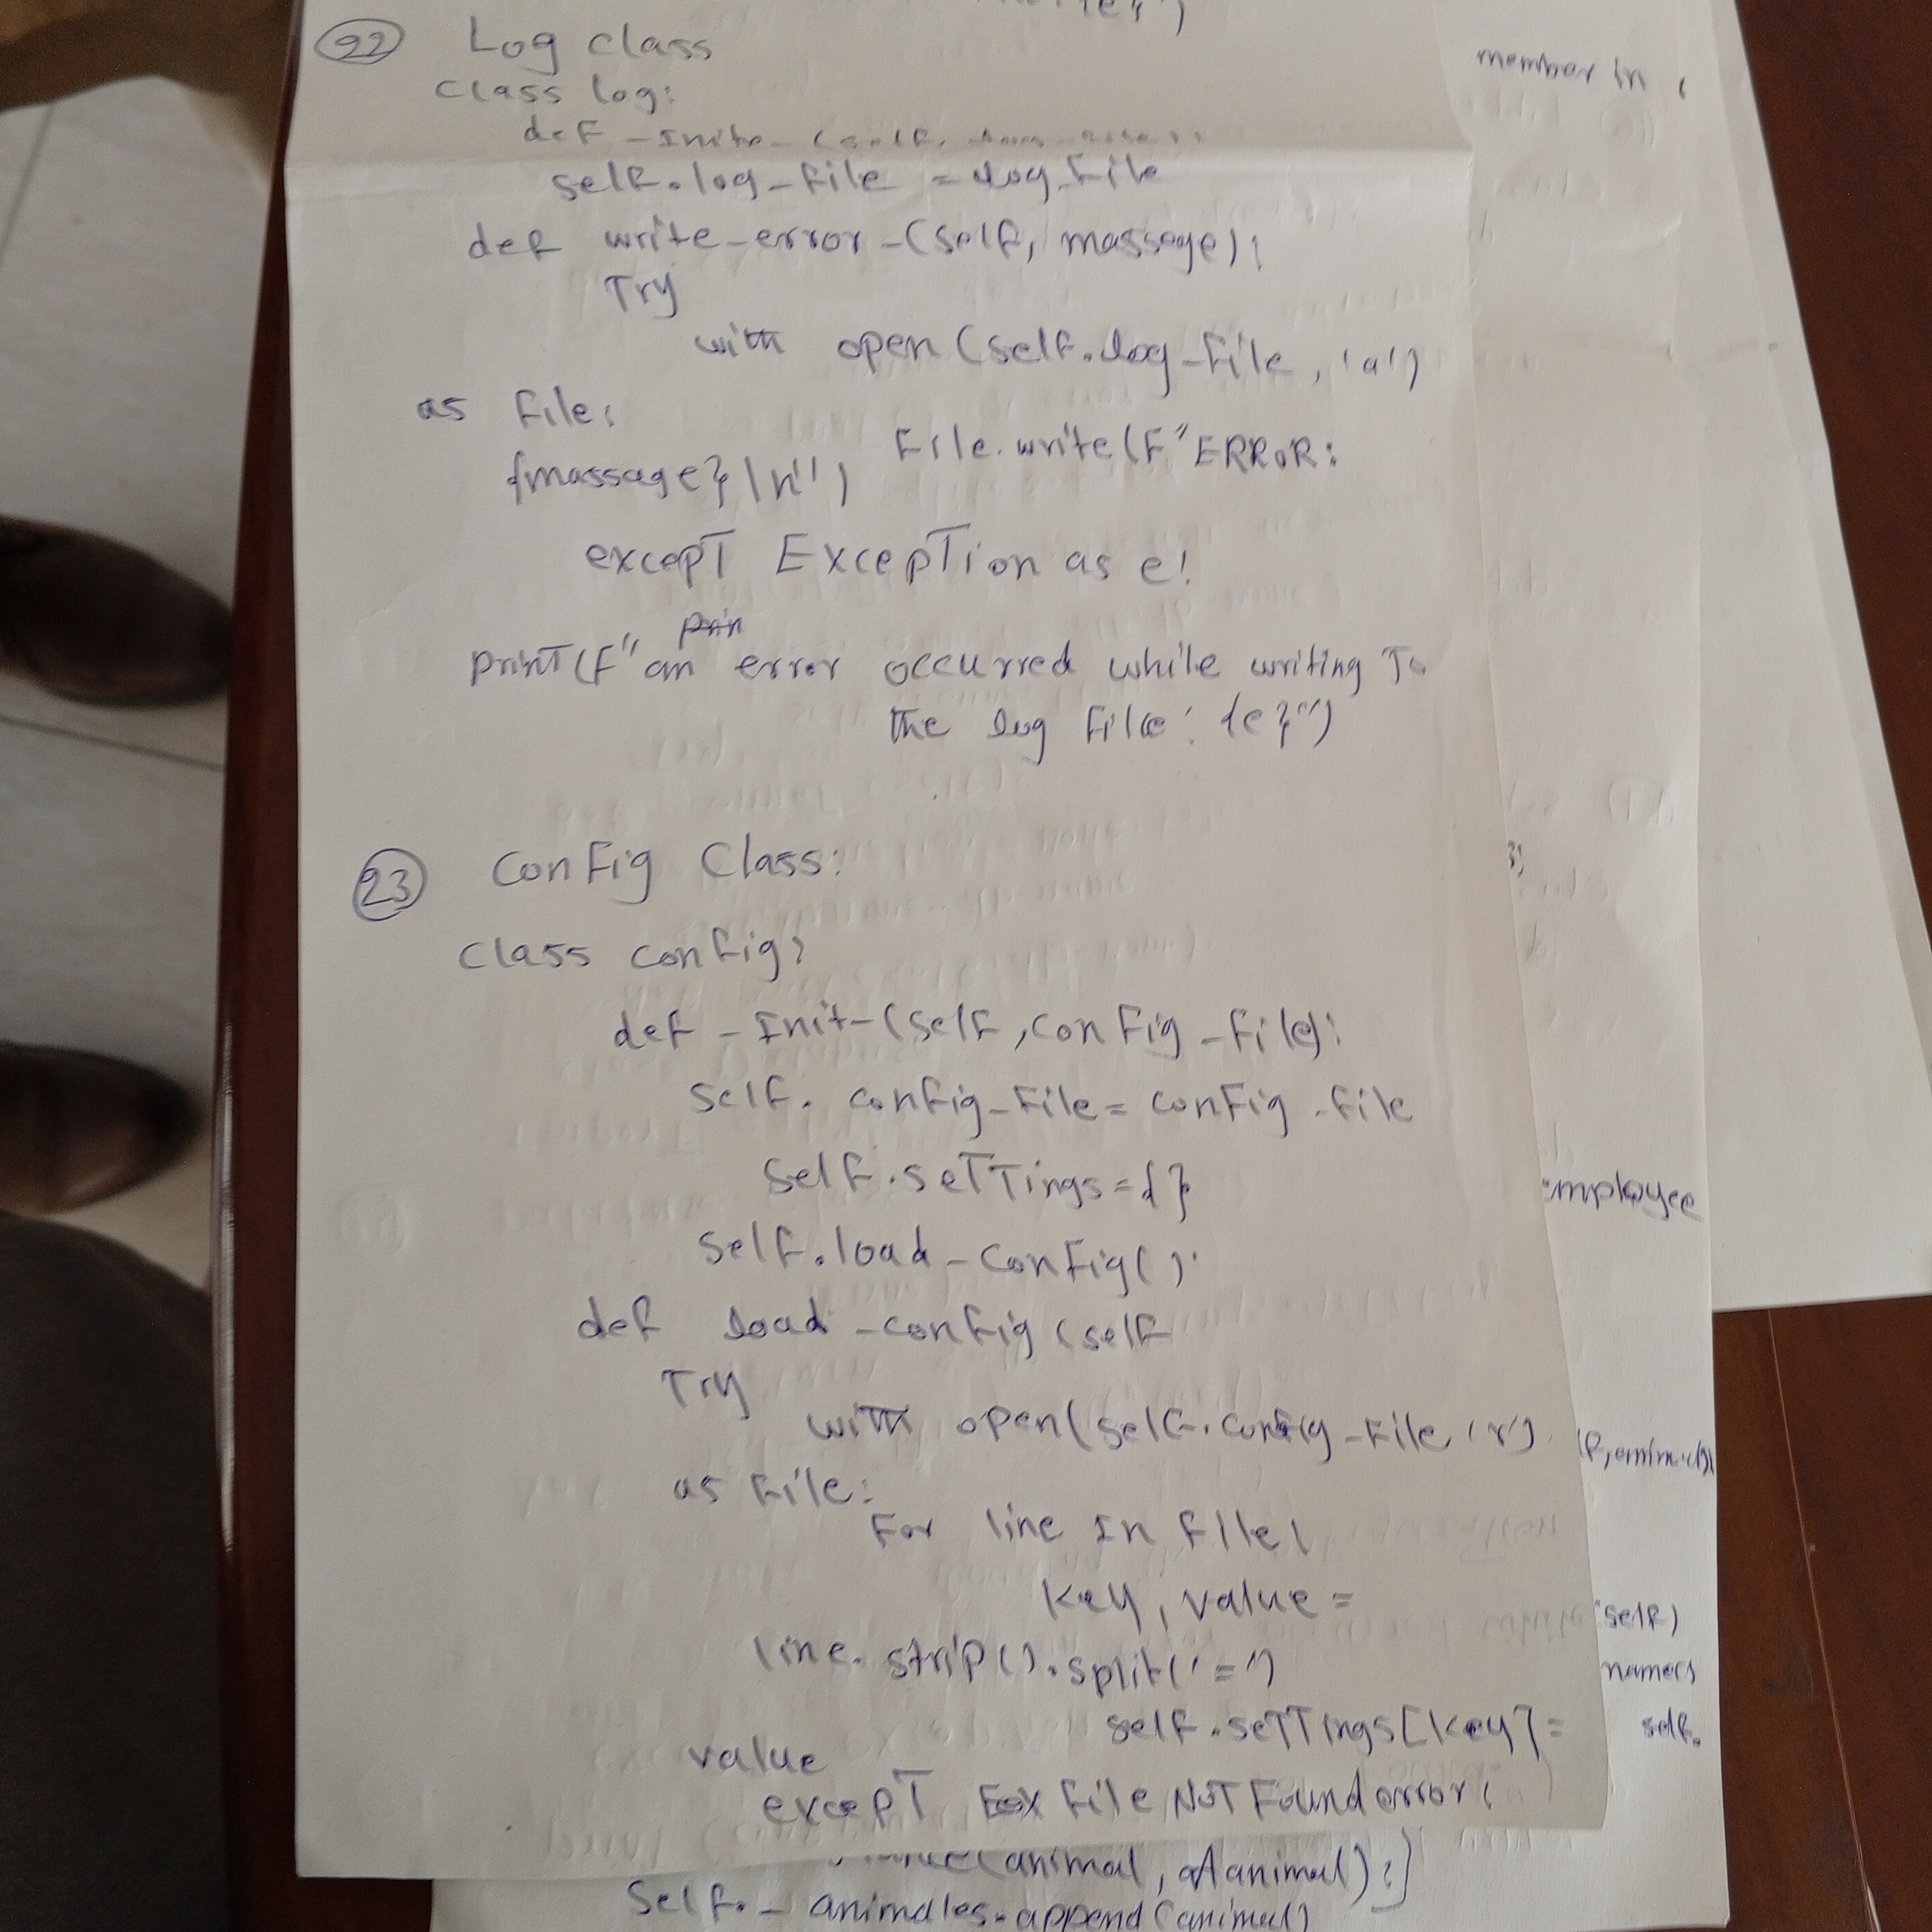 22 Log class
class log:
def -Inite- (self,
self.log-file = log-file
def write-error-(self, massage):
Try
with open (self.log-file, 'a')
as file:
File.write(F"ERROR:
{massage}\n")
except Exception as e:
print(F" an error occurred while writing To
the log file: {e}")
23 Config Class:
class config:
def -Init-(self, config-file):
self. config-file = config-file
self.settings={}
self.load-config()
def load-config (self
Try
with open(self.config-file 'r')
as file:
For line In file:
key, value =
line.strip().split('=')
self.settings[key]=
value
except File NOT Found error:
(animal, aAnimal):]
self.- animales.append(animal)
member in
employee
self)
names
self.